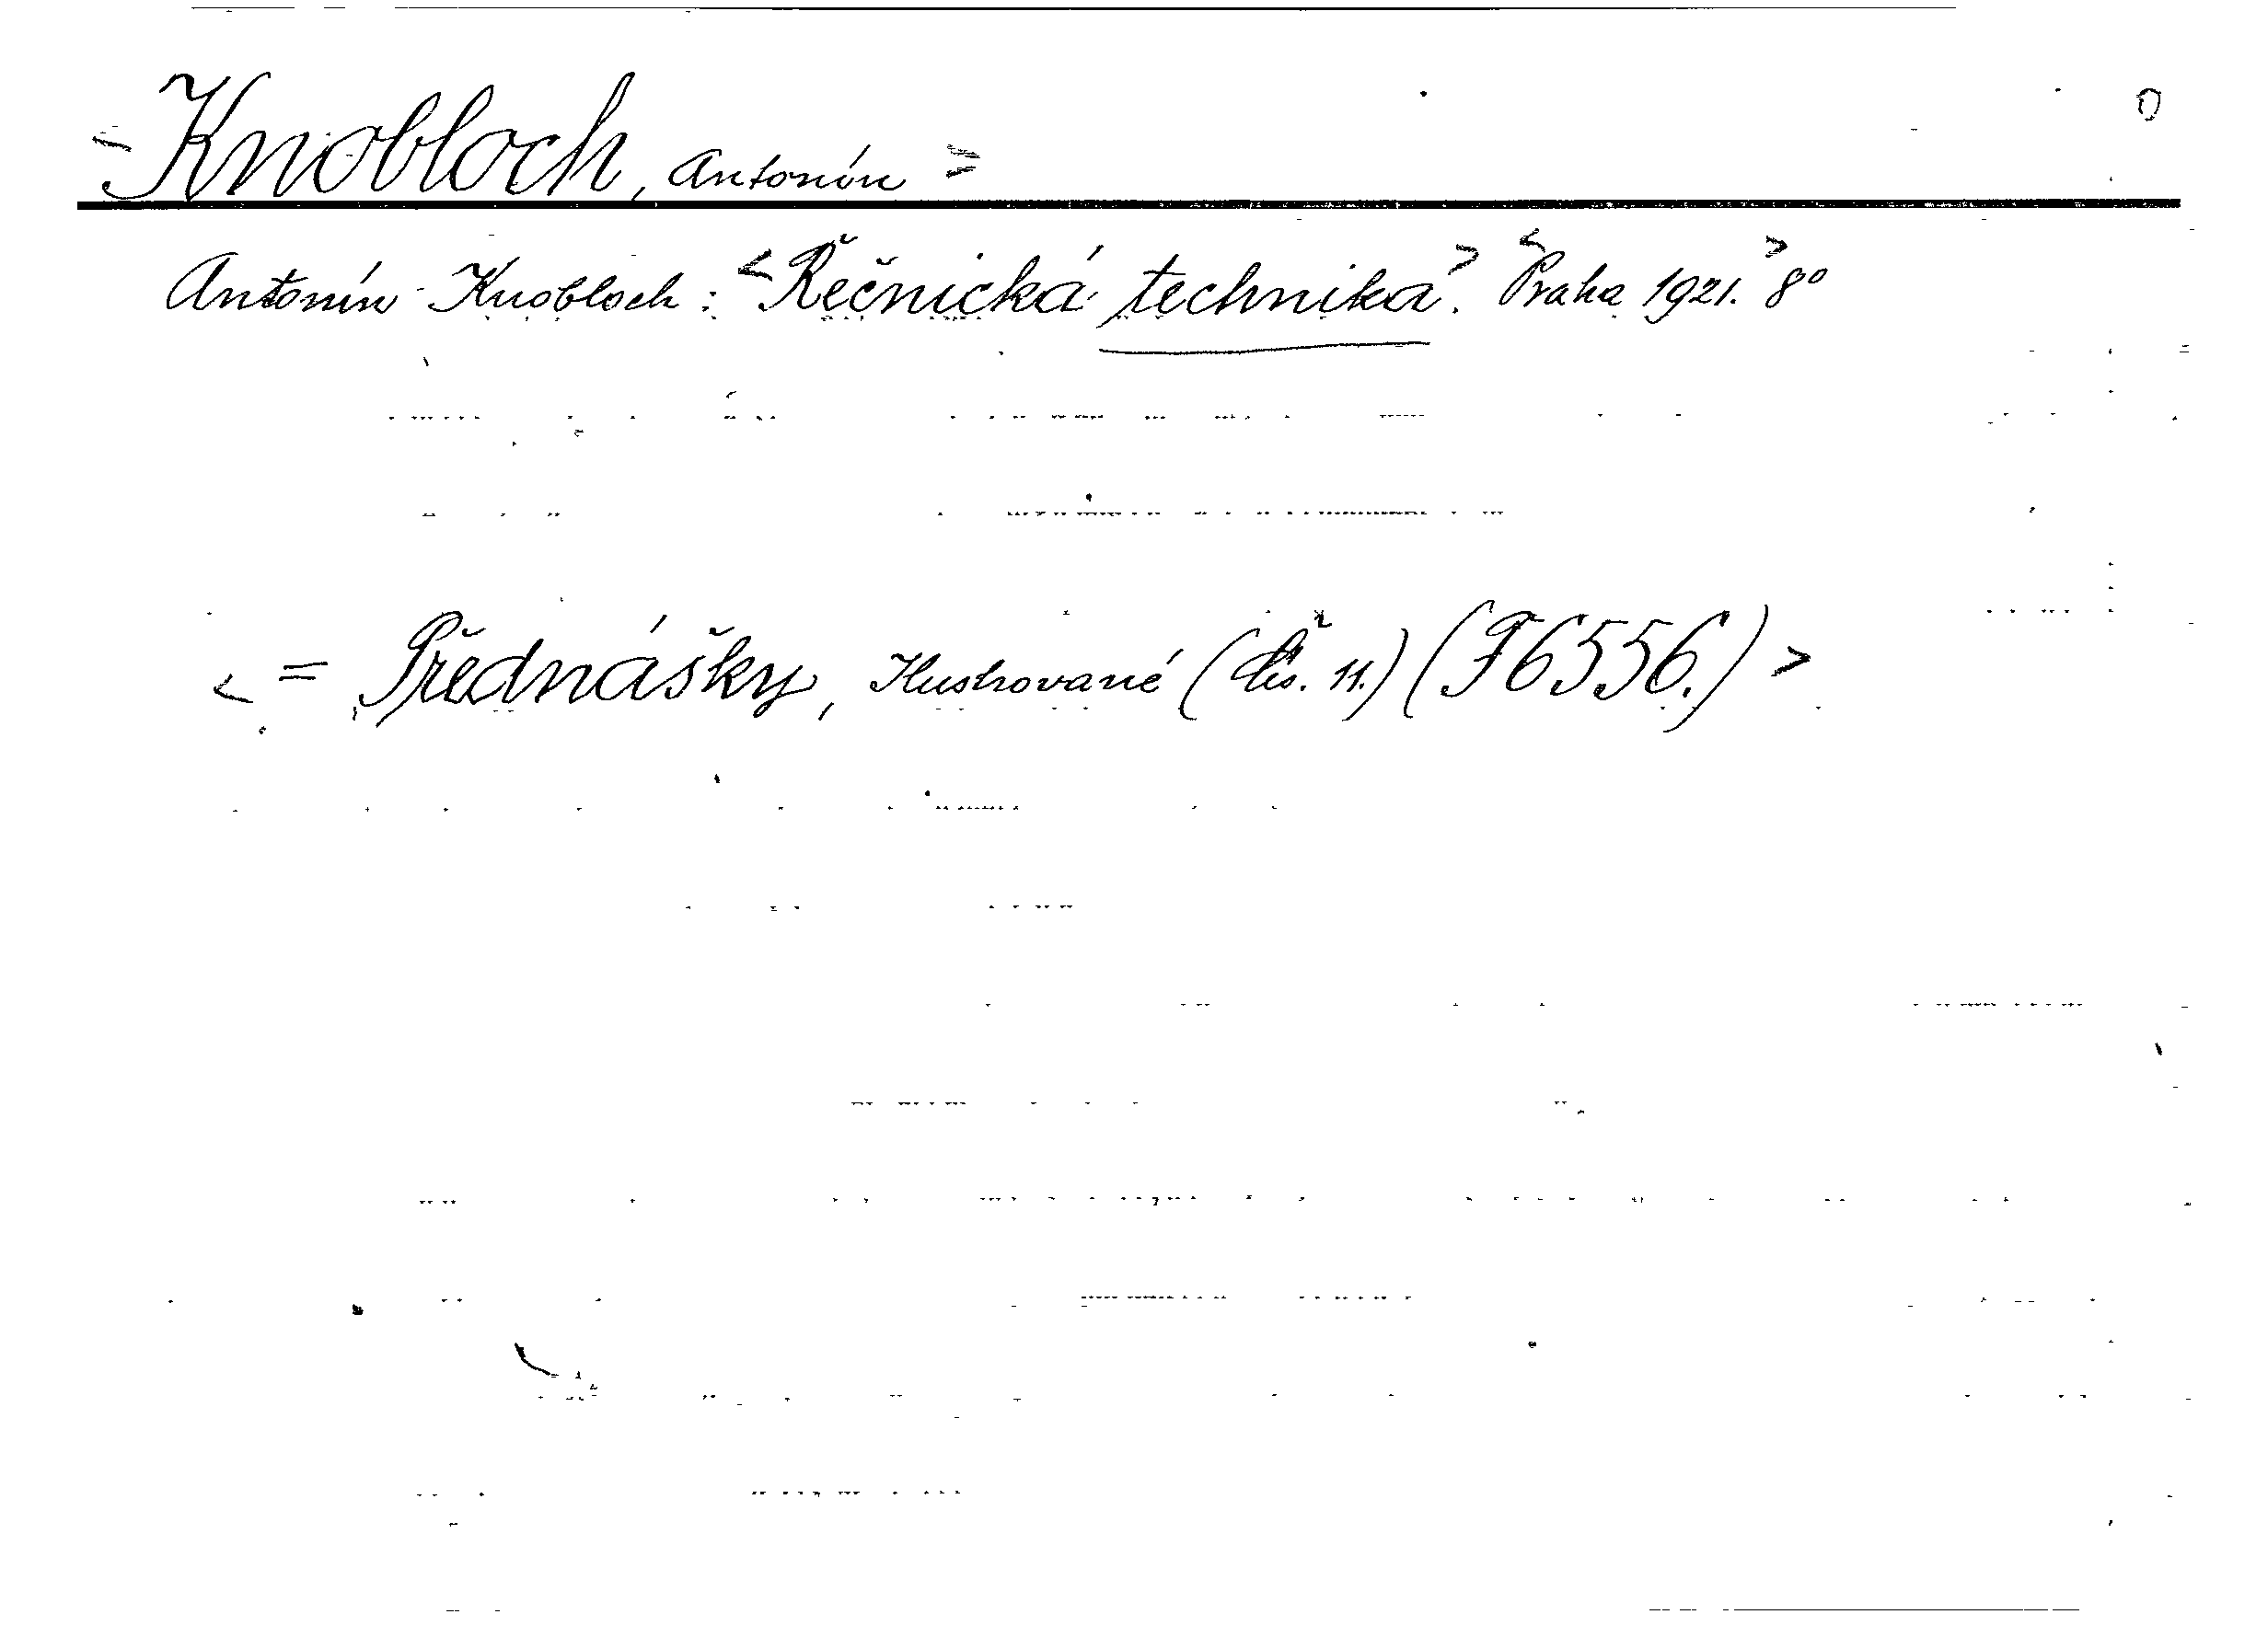 <Knobloch, Antonín>
Antonín Knobloch: <Řečnická technika>. <Praha 1921.> 8°
< = Přednášky, Ilustrované (čís. 11.) (F6556.) >